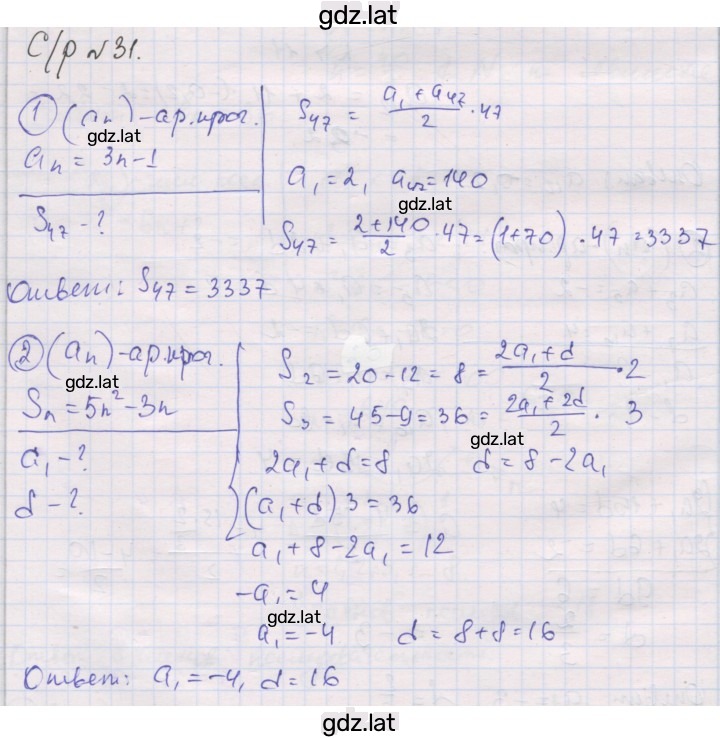 gdz.lat
С/р №31.
① (aₙ) - ар. прог.
gdz.lat
aₙ = 3n-1
S₄₇ - ?
S₄₇ = (a₁ + a₄₇)/2 · 47
a₁ = 2, a₄₇ = 140
gdz.lat
S₄₇ = (2+140)/2 · 47 = (1+70) · 47 = 3337
Ответ: S₄₇ = 3337
② (aₙ) - ар. прог.
gdz.lat
Sₙ = 5n² - 3n
a₁ - ?
d - ?
S₂ = 20 - 12 = 8 = (2a₁ + d)/2 · 2
S₃ = 45 - 9 = 36 = (2a₁ + 2d)/2 · 3
gdz.lat
2a₁ + d = 8 d = 8 - 2a₁
(a₁ + d) 3 = 36
a₁ + 8 - 2a₁ = 12
-a₁ = 4
gdz.lat
a₁ = -4 d = 8 + 8 = 16
Ответ: a₁ = -4, d = 16
gdz.lat